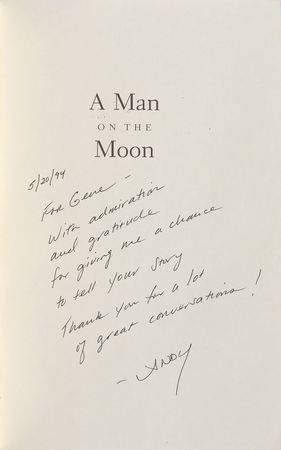 A Man
ON THE
Moon
5/20/94
For Gene –
With admiration
and gratitude
for giving me a chance
to tell your story
Thank you for a lot
of great conversations!
– ANDY